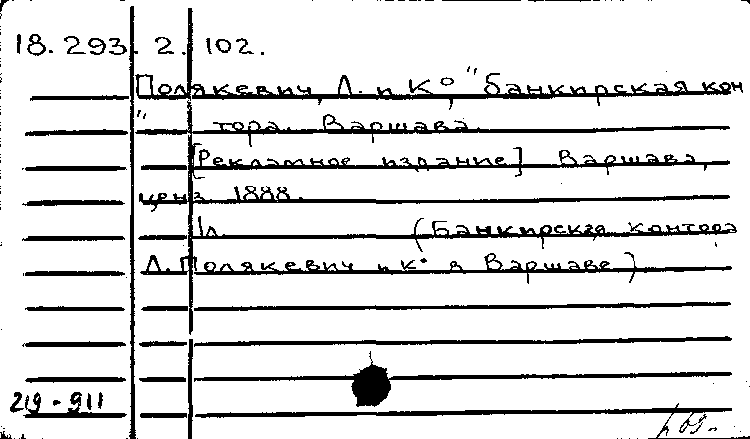 18.293.2.102.
Полякевич, Л. и К°, "банкирская кон
" тора. Варшава.
[Рекламное издание] Варшава,
ценз. 1888.
1л. (Банкирская контора
Л. Полякевич и К° в Варшаве)
219-911